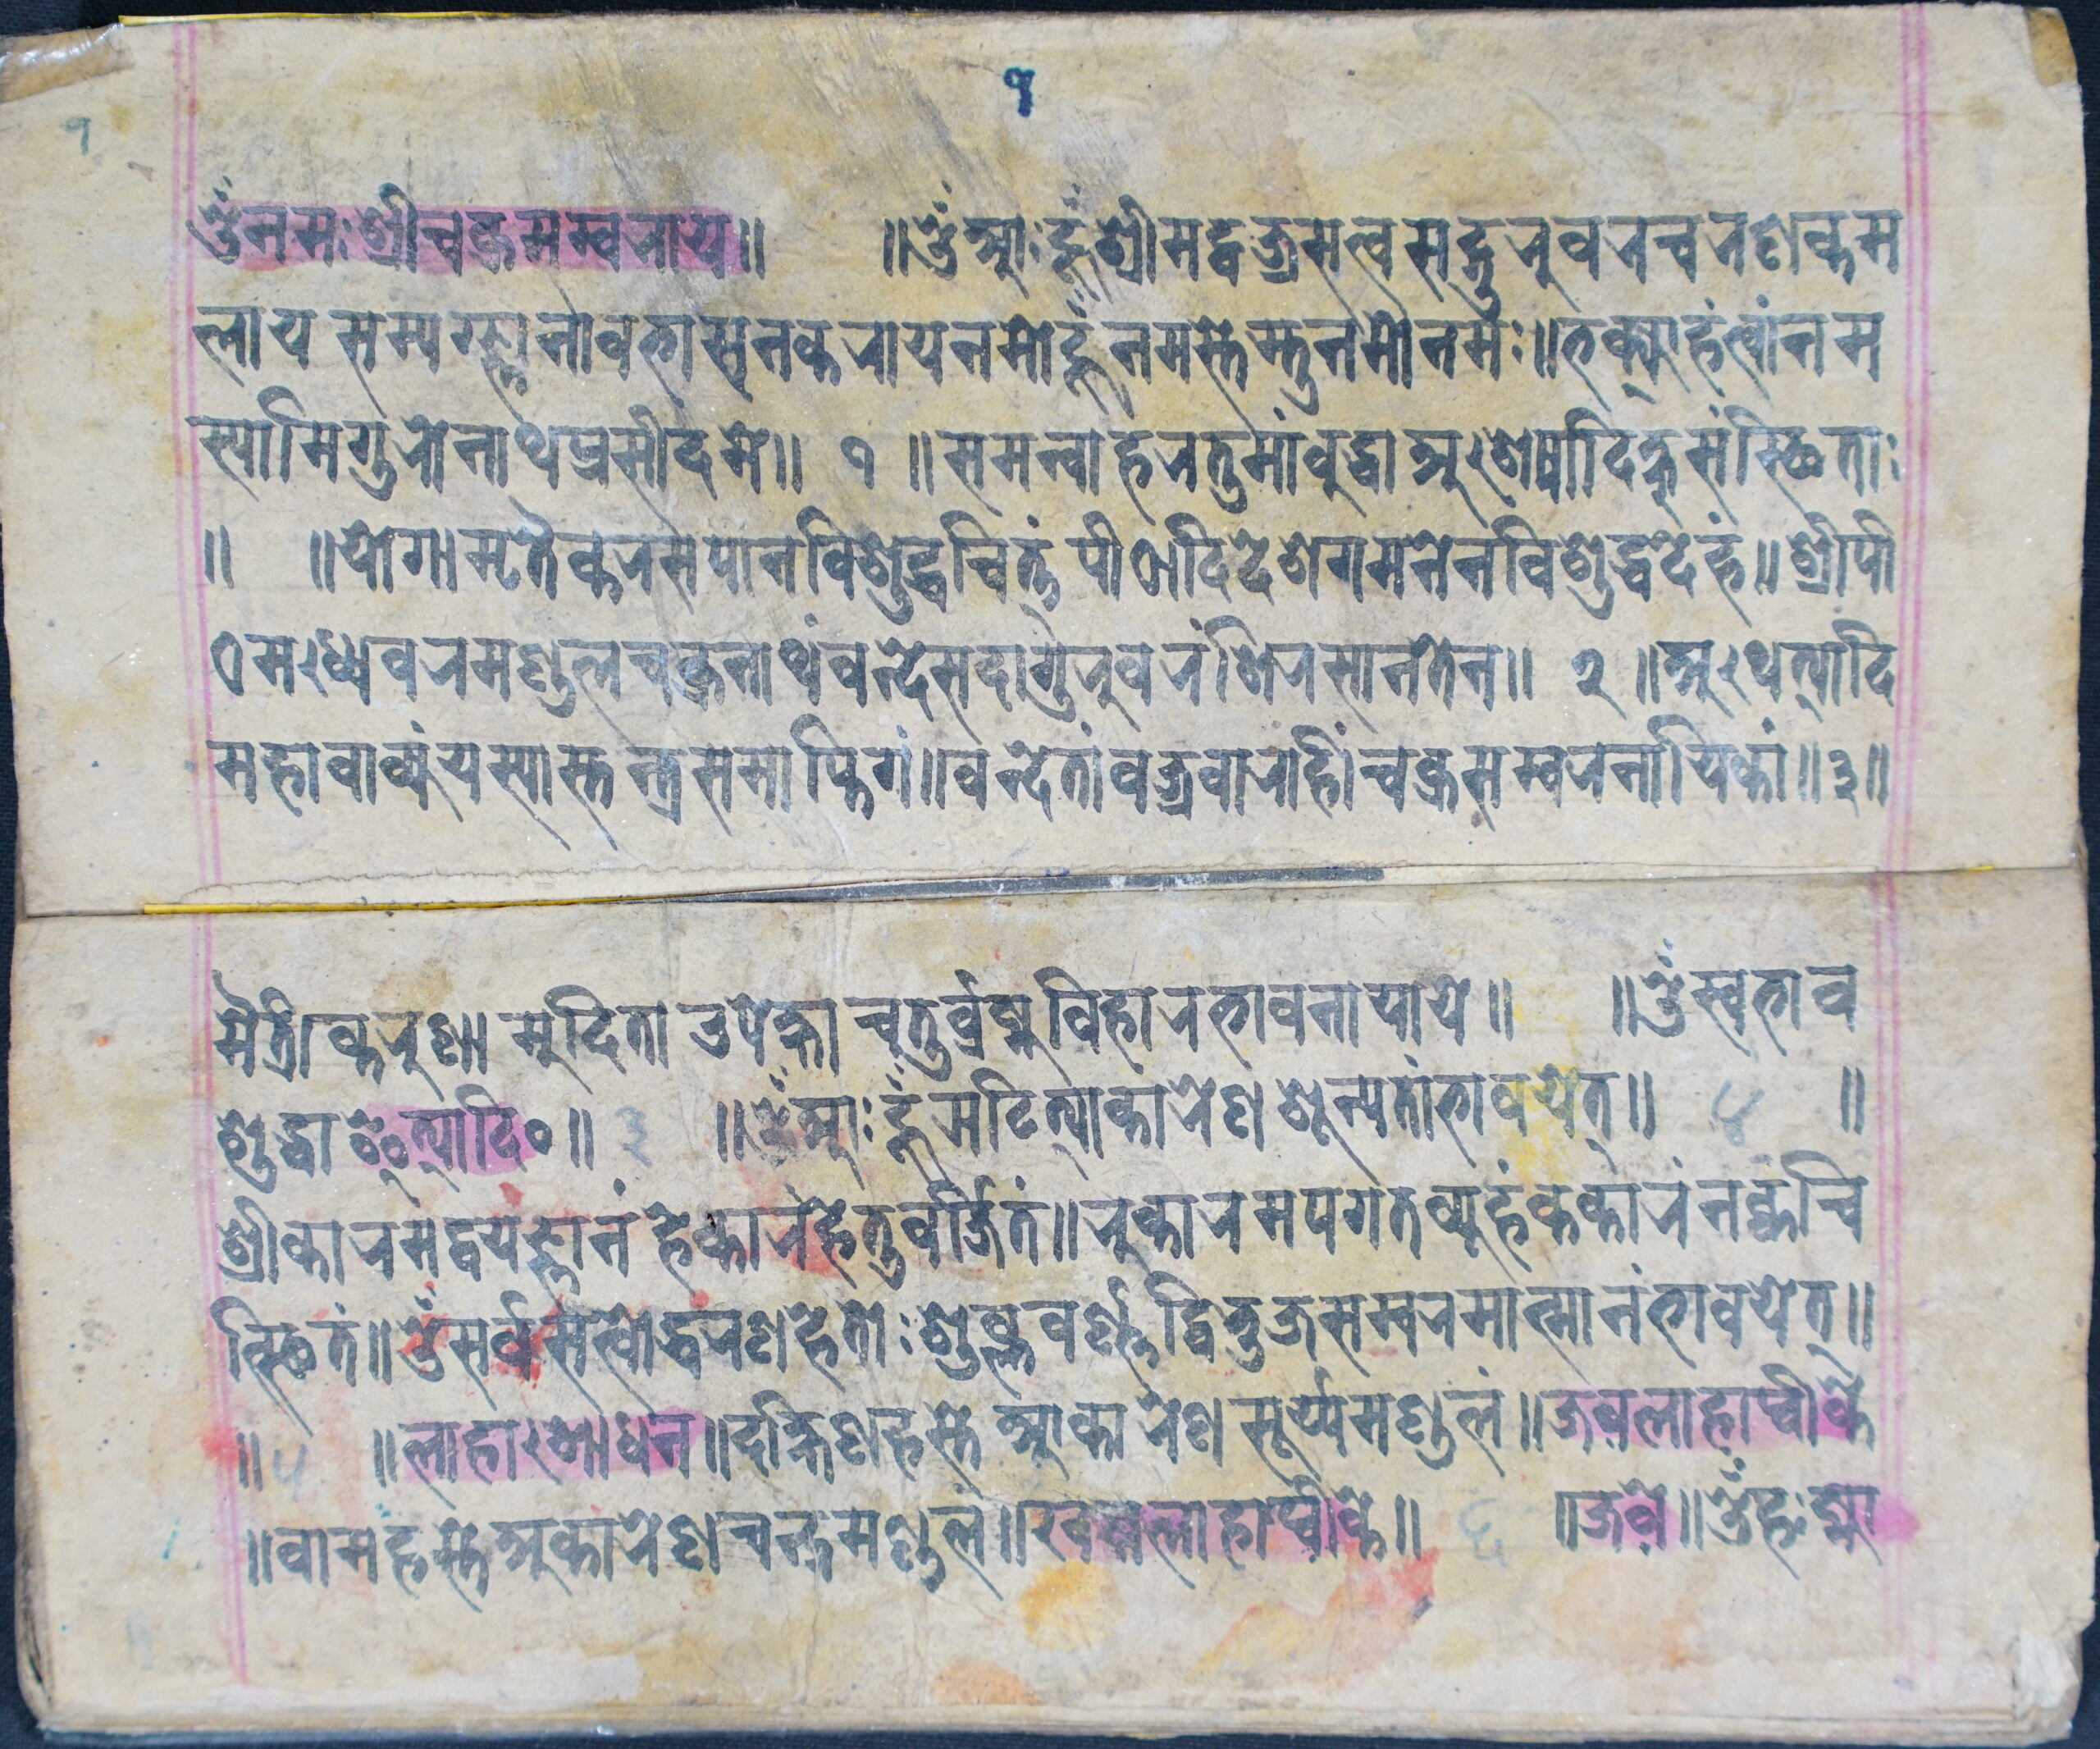 १
१
ॐ नमः श्रीचक्रसम्वराय॥ ॥ॐ आः हूँ श्रीमद्वज्रसत्वसद्गुरुवरचरणकम
लाय सम्यग्ज्ञानावभासनकराय नमो हूँ नमस्तेस्तु नमो नमः॥भक्त्याहं त्वां नम
स्यामि गुरो नाथ प्रसीद मे॥ १ ॥समन्वाहरतु मां बुद्धा अशेषादिक्षु संस्थिताः
॥ ॥योगामृतैकरसपानविशुद्धचित्तं पीठादिदेशगमनेन विशुद्धदेहं॥श्रीपी
ठमध्यवरमण्डलचक्रनाथं वन्दे सदा गुरुवरं शिरसानतेन॥ २ ॥अथेत्यादि
महावाक्यं यस्यास्तन्त्रसमाप्तिगं॥वन्दे तां वज्रवाराहीं चक्रसम्वरनायिकां॥३॥
मैत्री करुणा मुदिता उपेक्षा चतुर्ब्रह्मविहारभावना याये॥ ॥ॐ स्वभाव
शुद्धा इत्यादि०॥ ३ ॥ॐ आः हूँ झटित्याकारेण शून्यतां भावयेत्॥ ४ ॥
श्रीकारमद्वयं ज्ञानं हेकारं हेतुवर्जितं॥रुकारमपगतव्यूहं ककारं न क्वचि
त्स्थितं॥ॐ सर्वसत्वोद्धरणहेतोः शुक्लवर्ण्ण द्विभुजसम्वरमात्मानं भावयेत्॥
॥ ५ ॥लाहाशोधन॥दक्षिणहस्ते आकारेण सूर्य्यमण्डलं॥जवलाहाथ्वीके
॥वामहस्ते अकारेण चन्द्रमण्डलं॥खवलाहाथ्वीके॥ ६ ॥जवे॥ॐ हः ह्मा